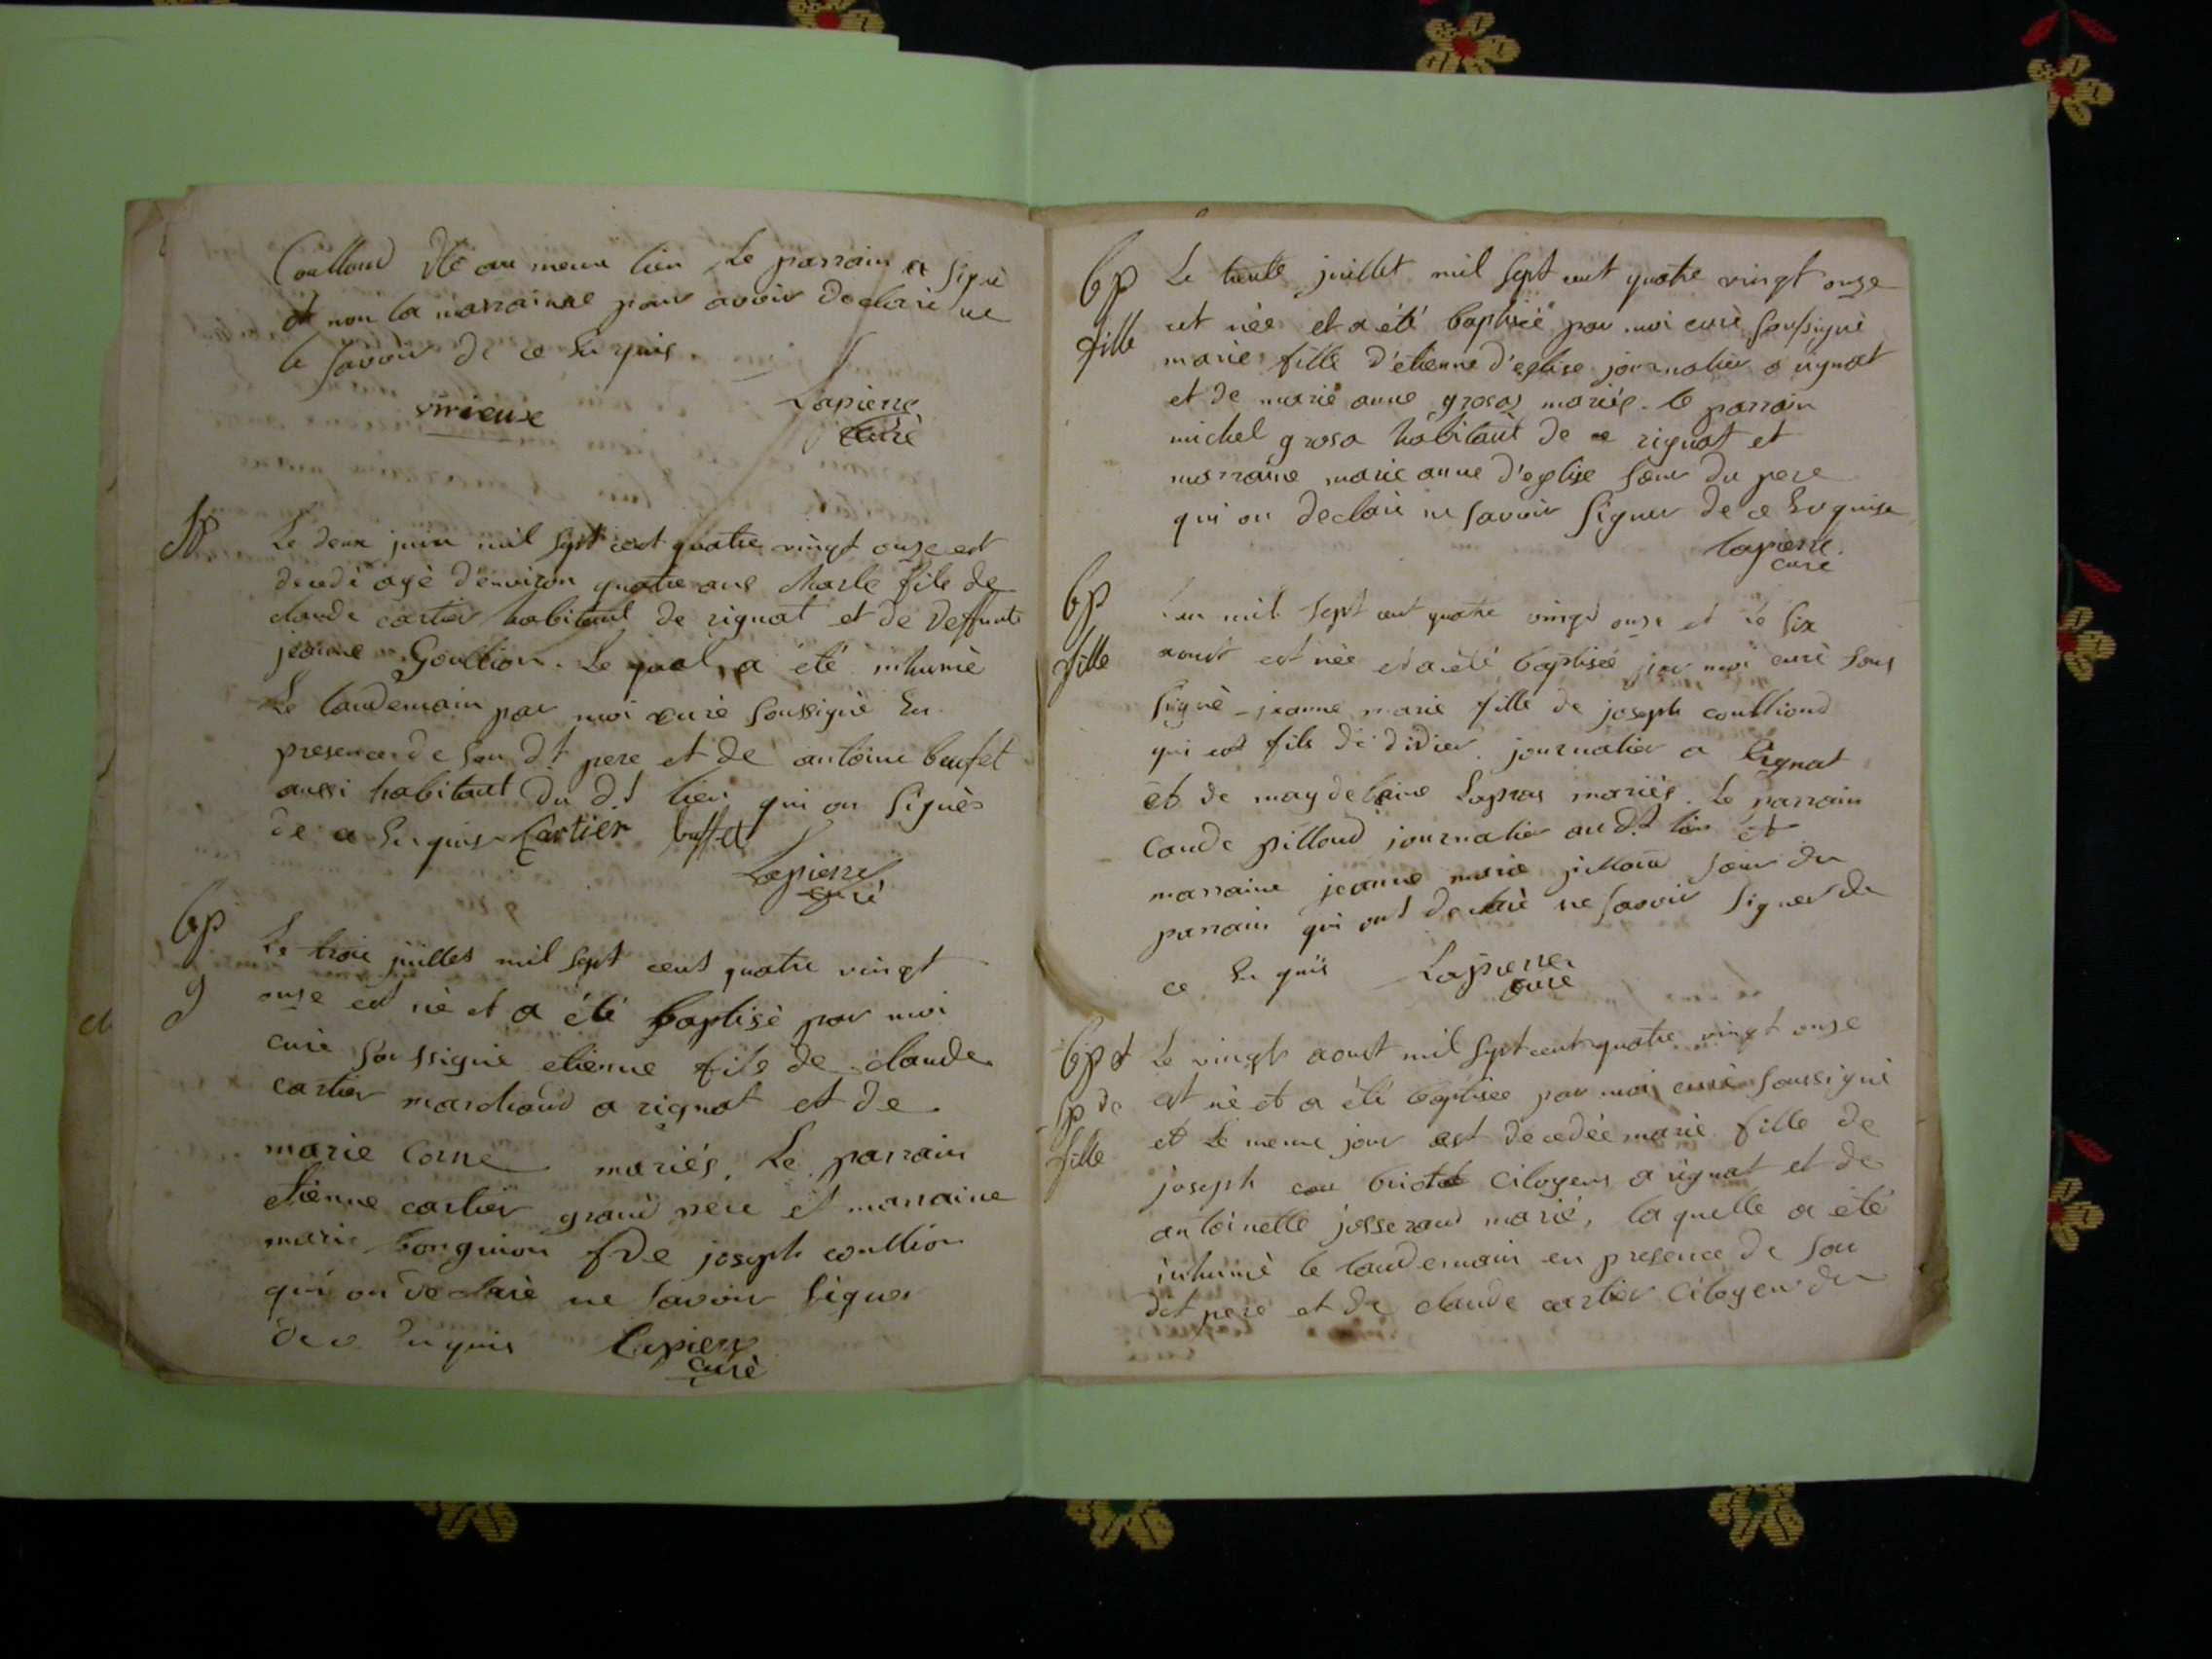 Coulloud dte au meme lieu Le parrain a signé
et non la marraine pour avoir declarè ne
le savoir de ce Enquis
vivieux
Lapierre
curé
Sp
Le deux juin mil sept cent quatre vingt onze est
decedé agé d'environ quatre ans charle fils de
claude cartier habitant de rignat et de deffunte
jeanne Goullion. Le quel a été inhumé
Le landemain par moi curé soussigné En
presence de son dt pere et de antoine buffet
aussi habitant du dt lieu qui on signès
de ce Enquis Cartier buffet
Lapierre
curé
bp
g
Le trois juilles mil sept cent quatre vingt
onze est né et a été baptisé par moi
curé soussigné etienne fils de claude
cartier marchand a rignat et de
marie Corne mariés. Le parrain
etienne cartier grand pere et marraine
marie bonguion f de joseph coullion
qui on declaré ne savoir signer
de ce Enquis Lapierre
curé
bp
fille
Le trente juillet mil sept cent quatre vingt onze
est née et a été baptisée par moi curé soussigné
marie fille d'etienne d'eglise journalier a rignat
et de marie anne grosas mariés. le parrain
michel grosa habitant de ce rignat et
marraine marie anne d'eglise soeur du pere
qui on declaré ne savoir signer de ce Enquise
Lapierre
curé
bp
fille
L'an mil sept cent quatre vingt onze et le six
aoust est née et a été baptisée par moi curé sous
signé - jeanne marie fille de joseph coulliond
qui est fils de didier journalier a Rignat
et de maydelaine Lapras mariés. Le parrain
Caude pilloud journalier au dt lieu et
marraine jeanne marie pilloud soeur du
parrain qui ont declaré ne savoir signer de
ce Enquis Lapierre
curé
bp et
sp de
fille
Le vingt aoust mil sept cent quatre vingt onze
est né et a été baptisée par moi curé soussigné
et le meme jour est decedée marie fille de
joseph brictot citoyens a rignat et de
antoinette josserand marié, la quelle a été
inhumé le landemain en presence de son
dt pere et de claude cartier citoyen du